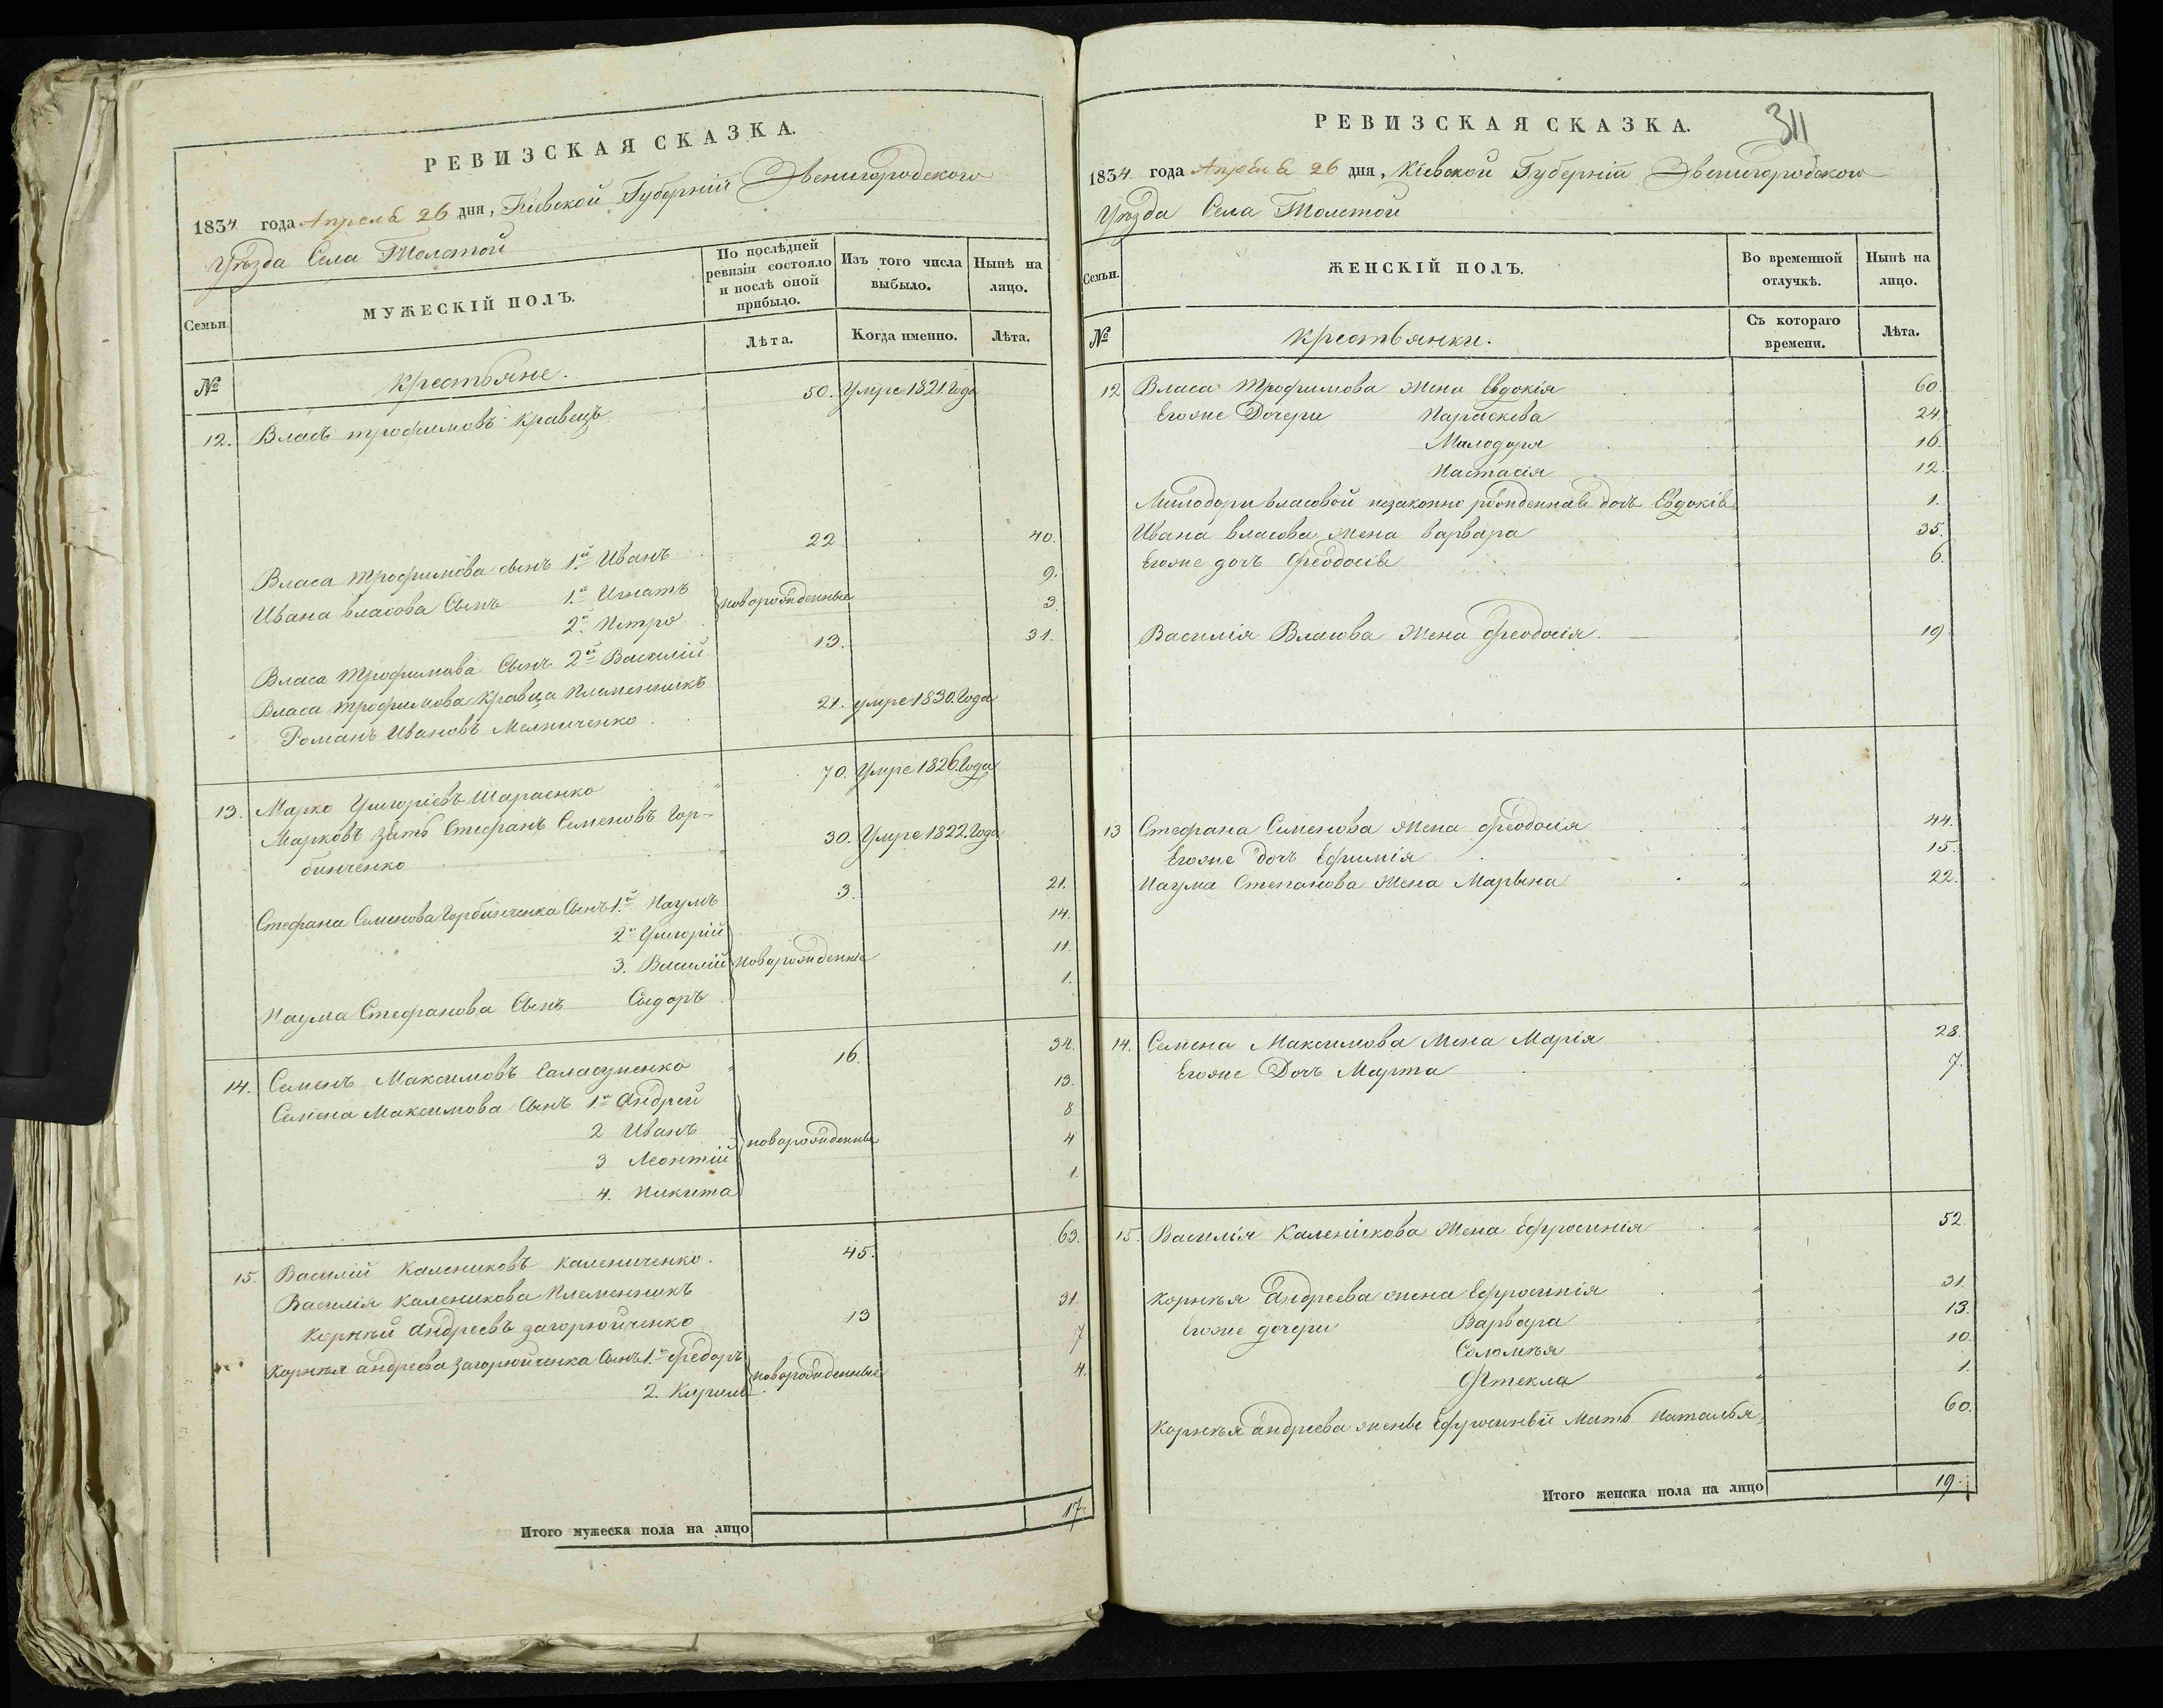 РЕВИЗСКАЯ СКАЗКА.
1834 года Апреля 26 дня, Кіевской Губерніи Звенигородского
Уѣзда Села Толстой
Семьи.
МУЖЕСКІЙ ПОЛЪ.
По послѣдней ревизіи состояло и послѣ оной прибыло.
Изъ того числа выбыло.
Нынѣ на лицо.
№
Крестьяне.
Лѣта.
Когда именно.
Лѣта.
12. Власъ трофимовъ Кравецъ 50. Умре 1821 Года
Власа Трофимова сынъ 1.й Иванъ 22 40.
Ивана власова Сынъ 1.й Игнатъ новорожденные 9.
2.й Петро 3.
Власа Трофимова Сынъ 2й Василій 13. 31.
Власа трофимова Кравца Племенникъ
Романъ Ивановъ Мелниченко 21. умре 1830. Года
13. Марко Григоріевъ Шараенко 70. Умре 1826. Года
Марковъ зять Стефанъ Семеновъ Гор-
бинченко 30. Умре 1822. Года
Стефана Семенова Горбинченка Сынъ 1.й Наумъ 3. 21.
2й Григорій 14.
3. Василій новорожденные 11.
Наума Стефанова Сынъ Сидоръ 1.
14. Семенъ Максимовъ Саласупенко 16. 34.
Семена Максимова Сынъ 1й Андрей 13.
2 Иванъ 8
3 Леонтій новорожденные 4
4. Никита 1.
15. Василій Калениковъ Калениченко. 45. 63.
Василія Каленикова Племенникъ
Корнѣй Андреевъ загорюйченко 13 31.
Корнѣя андреева Загорюйченка Сынъ 1.й Федоръ новорожденные 7
2. Кирило 4.
Итого мужеска пола на лицо 17.
311
РЕВИЗСКАЯ СКАЗКА.
1834 года Апреля 26 дня, Кіевской Губерніи Звенигородского
Уѣзда Села Толстой
Семьи.
ЖЕНСКІЙ ПОЛЪ.
Во временной отлучкѣ.
Нынѣ на лицо.
№
Крестьянки.
Съ котораго времени.
Лѣта.
12 Власа Трофимова жена Евдокія 60
Егоже Дочери Параскева 24
Милодора 16.
Настасія 12.
Милодори власовой незаконно рожденная дочь Евдокія 1.
Ивана власова жена варвара 35.
Егоже дочь Феодосія 6.
Василія Власова Жена Феодосія. 19
13 Стефана Семенова жена феодосія 44.
Егоже дочь Ефимія 15.
Наума Степанова Жена Марьяна 22.
14. Семена Максимова Жена Марія 28.
Егоже Дочь Марта 7.
15. Василія Каленикова Жена Ефросинія 52
Корнѣя Андреева жена Ефросинія 31.
Егоже дочери Варвара 13.
Соломѣя 10.
Фтекла 1.
Корнѣя андреева жены Ефросиньи Мать Наталья 60.
Итого женска пола на лицо 19.